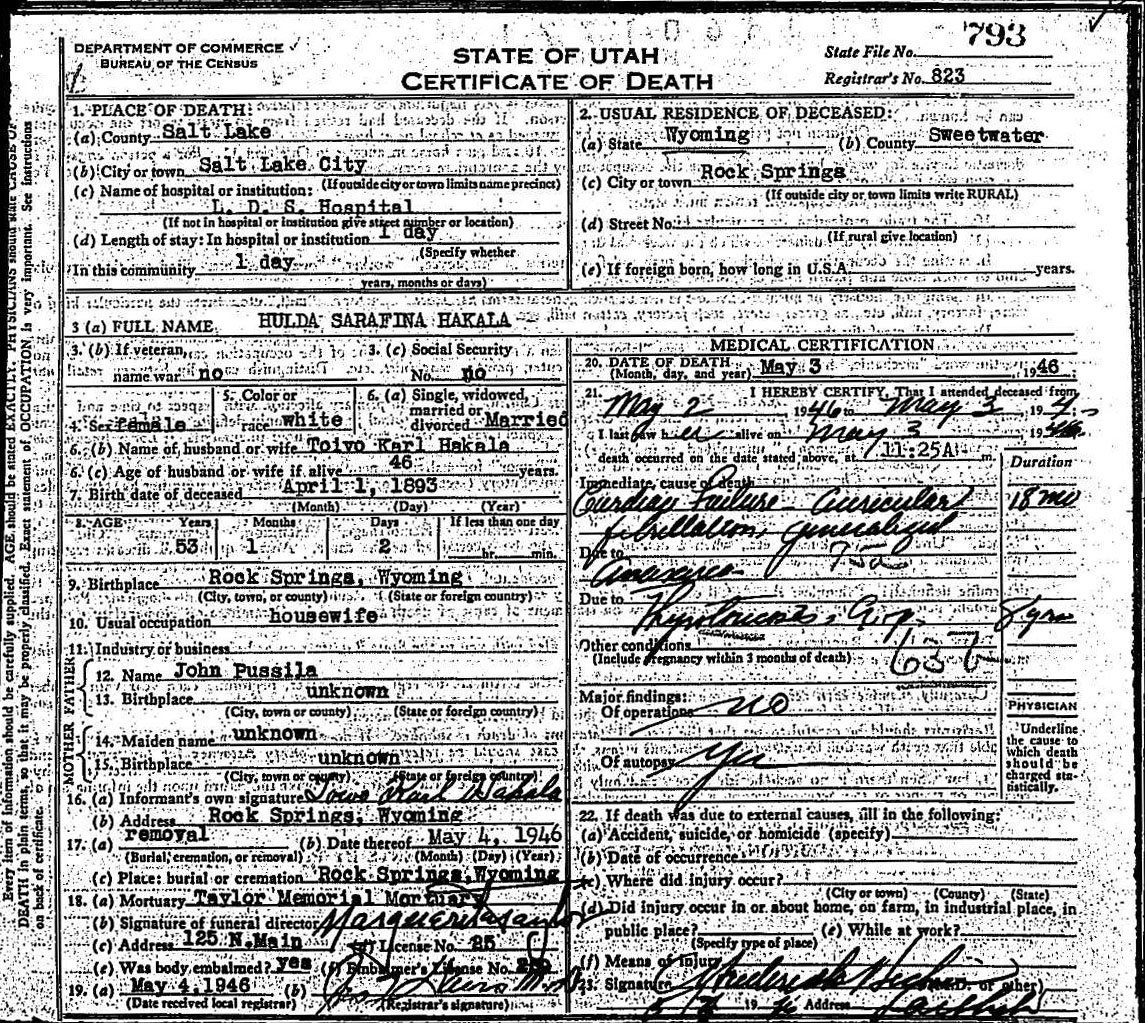 793
DEPARTMENT OF COMMERCE
BUREAU OF THE CENSUS
STATE OF UTAH
CERTIFICATE OF DEATH
State File No.
Registrar's No. 823
1. PLACE OF DEATH:
(a) County Salt Lake
(b) City or town Salt Lake City
(If outside city or town limits name precinct)
(c) Name of hospital or institution:
L. D. S. Hospital
(If not in hospital or institution give street number or location)
(d) Length of stay: In hospital or institution 1 day
(Specify whether
In this community 1 day
years, months or days)
2. USUAL RESIDENCE OF DECEASED:
(a) State Wyoming (b) County Sweetwater
(c) City or town Rock Springs
(If outside city or town limits write RURAL)
(d) Street No.
(If rural give location)
(e) If foreign born, how long in U.S.A. years.
3 (a) FULL NAME HULDA SARAFINA HAKALA
3. (b) If veteran, name war no
3. (c) Social Security No. no
4. Sex female
5. Color or race white
6. (a) Single, widowed, married or divorced Married
6. (b) Name of husband or wife Toivo Karl Hakala
6. (c) Age of husband or wife if alive 46 years.
7. Birth date of deceased April 1, 1893
(Month) (Day) (Year)
8. AGE Years Months Days If less than one day
53 1 2 hr. min.
9. Birthplace Rock Springs, Wyoming
(City, town, or county) (State or foreign country)
10. Usual occupation housewife
11. Industry or business
FATHER
12. Name John Pussila
13. Birthplace unknown
(City, town or county) (State or foreign country)
MOTHER
14. Maiden name unknown
15. Birthplace unknown
(City, town or county) (State or foreign country)
16. (a) Informant's own signature Toivo Karl Hakala
(b) Address Rock Springs, Wyoming
17. (a) removal (b) Date thereof May 4, 1946
(Burial, cremation, or removal) (Month) (Day) (Year)
(c) Place: burial or cremation Rock Springs, Wyoming
18. (a) Mortuary Taylor Memorial Mortuary
(b) Signature of funeral director Marguerite Taylor
(c) Address 125 N. Main License No. 25
(e) Was body embalmed? yes (f) Embalmer's License No.
19. (a) May 4, 1946 (b)
(Date received local registrar) (Registrar's signature)
MEDICAL CERTIFICATION
20. DATE OF DEATH May 3, 1946
(Month, day, and year)
21. I HEREBY CERTIFY, That I attended deceased from
May 2 1946 to May 3 19
I last saw her alive on May 3 1946
death occurred on the date stated above, at 11:25A m.
Duration
Immediate cause of death
Cardiac Failure - Auricular 18 mo
fibrillation, generalized
Due to
anasarca
Due to
8 yrs
Other conditions
(Include pregnancy within 3 months of death)
637
Major findings:
Of operations no
Of autopsy yes
PHYSICIAN
Underline
the cause to
which death
should be
charged sta-
tistically.
22. If death was due to external causes, fill in the following:
(a) Accident, suicide, or homicide (specify)
(b) Date of occurrence
(c) Where did injury occur?
(City or town) (County) (State)
(d) Did injury occur in or about home, on farm, in industrial place, in
public place? (e) While at work?
(Specify type of place)
(f) Means of injury
23. Signature (M.D. or other)
19 Address
Every item of information should be carefully supplied. AGE should be stated EXACTLY. PHYSICIANS should state CAUSE OF
DEATH in plain terms, so that it may be properly classified. Exact statement of OCCUPATION is very important. See instructions
on back of certificate.